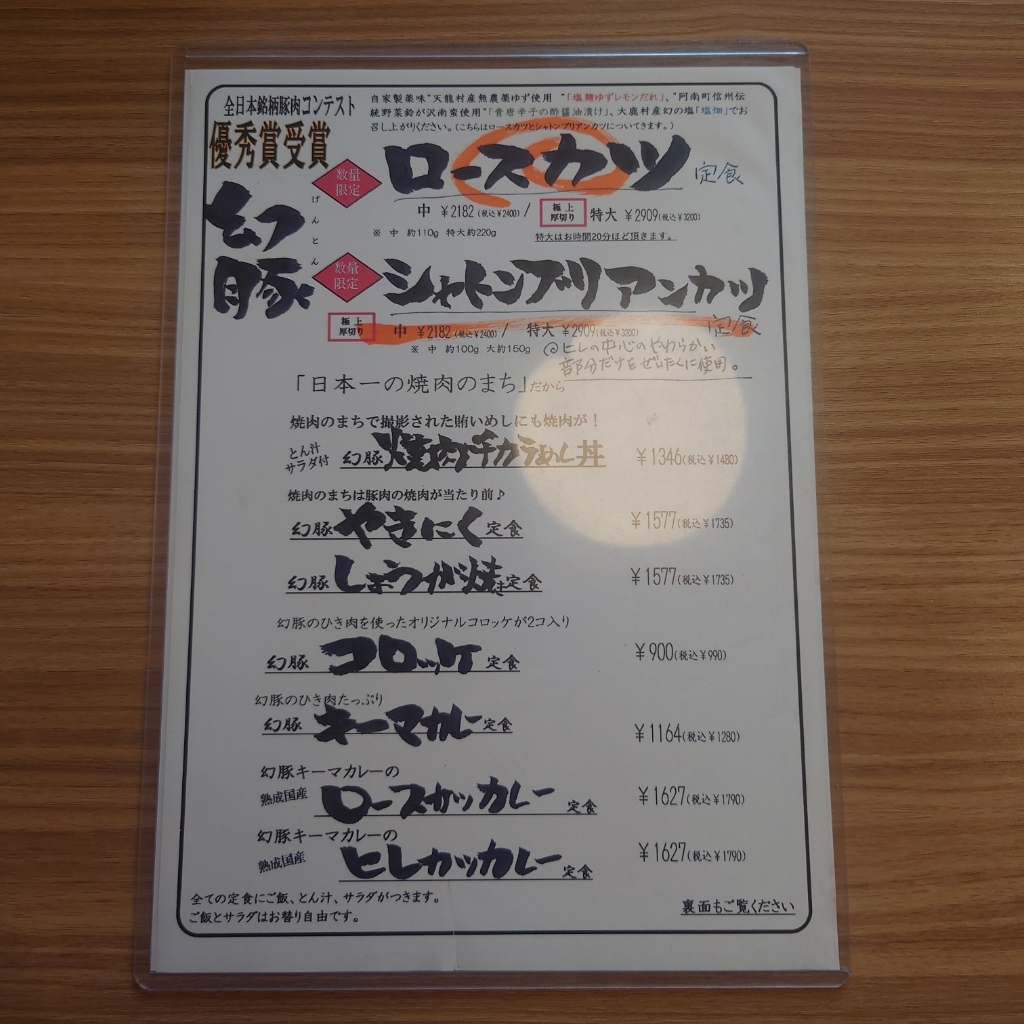 全日本銘柄豚肉コンテスト
優秀賞受賞
自家製薬味"天龍村産無農薬ゆず使用 "「塩麹ゆずレモンだれ」、"阿南町信州伝
統野菜鈴が沢南蛮使用"「青唐辛子の酢醤油漬け」、大鹿村産幻の塩「塩畑」でお
召し上がりください。(こちらはロースカツとシャトンブリアンカツについてきます。)
幻豚
げんとん
数量
限定
ロースカツ 定食
中 ¥2182(税込¥2400) / 極上厚切り 特大 ¥2909(税込¥3200)
※ 中 約110g 特大約220g 特大はお時間20分ほど頂きます。
数量
限定
シャトンブリアンカツ 定食
極上厚切り 中 ¥2182(税込¥2400) / 特大 ¥2909(税込¥3200)
※ 中 約100g 大約150g
◎ヒレの中心のやわらかい
部分だけをぜいたくに使用。
「日本一の焼肉のまち」だから
焼肉のまちで撮影された賄いめしにも焼肉が！
とん汁
サラダ付
幻豚 焼肉チカラめし丼 ¥1346(税込¥1480)
焼肉のまちは豚肉の焼肉が当たり前♪
幻豚 やきにく 定食 ¥1577(税込¥1735)
幻豚 しょうが焼き定食 ¥1577(税込¥1735)
幻豚のひき肉を使ったオリジナルコロッケが2コ入り
幻豚 コロッケ 定食 ¥900(税込¥990)
幻豚のひき肉たっぷり
幻豚 キーマカレー定食 ¥1164(税込¥1280)
幻豚キーマカレーの
熟成国産 ロースカツカレー 定食 ¥1627(税込¥1790)
幻豚キーマカレーの
熟成国産 ヒレカツカレー 定食 ¥1627(税込¥1790)
全ての定食にご飯、とん汁、サラダがつきます。
ご飯とサラダはお替り自由です。
裏面もご覧ください